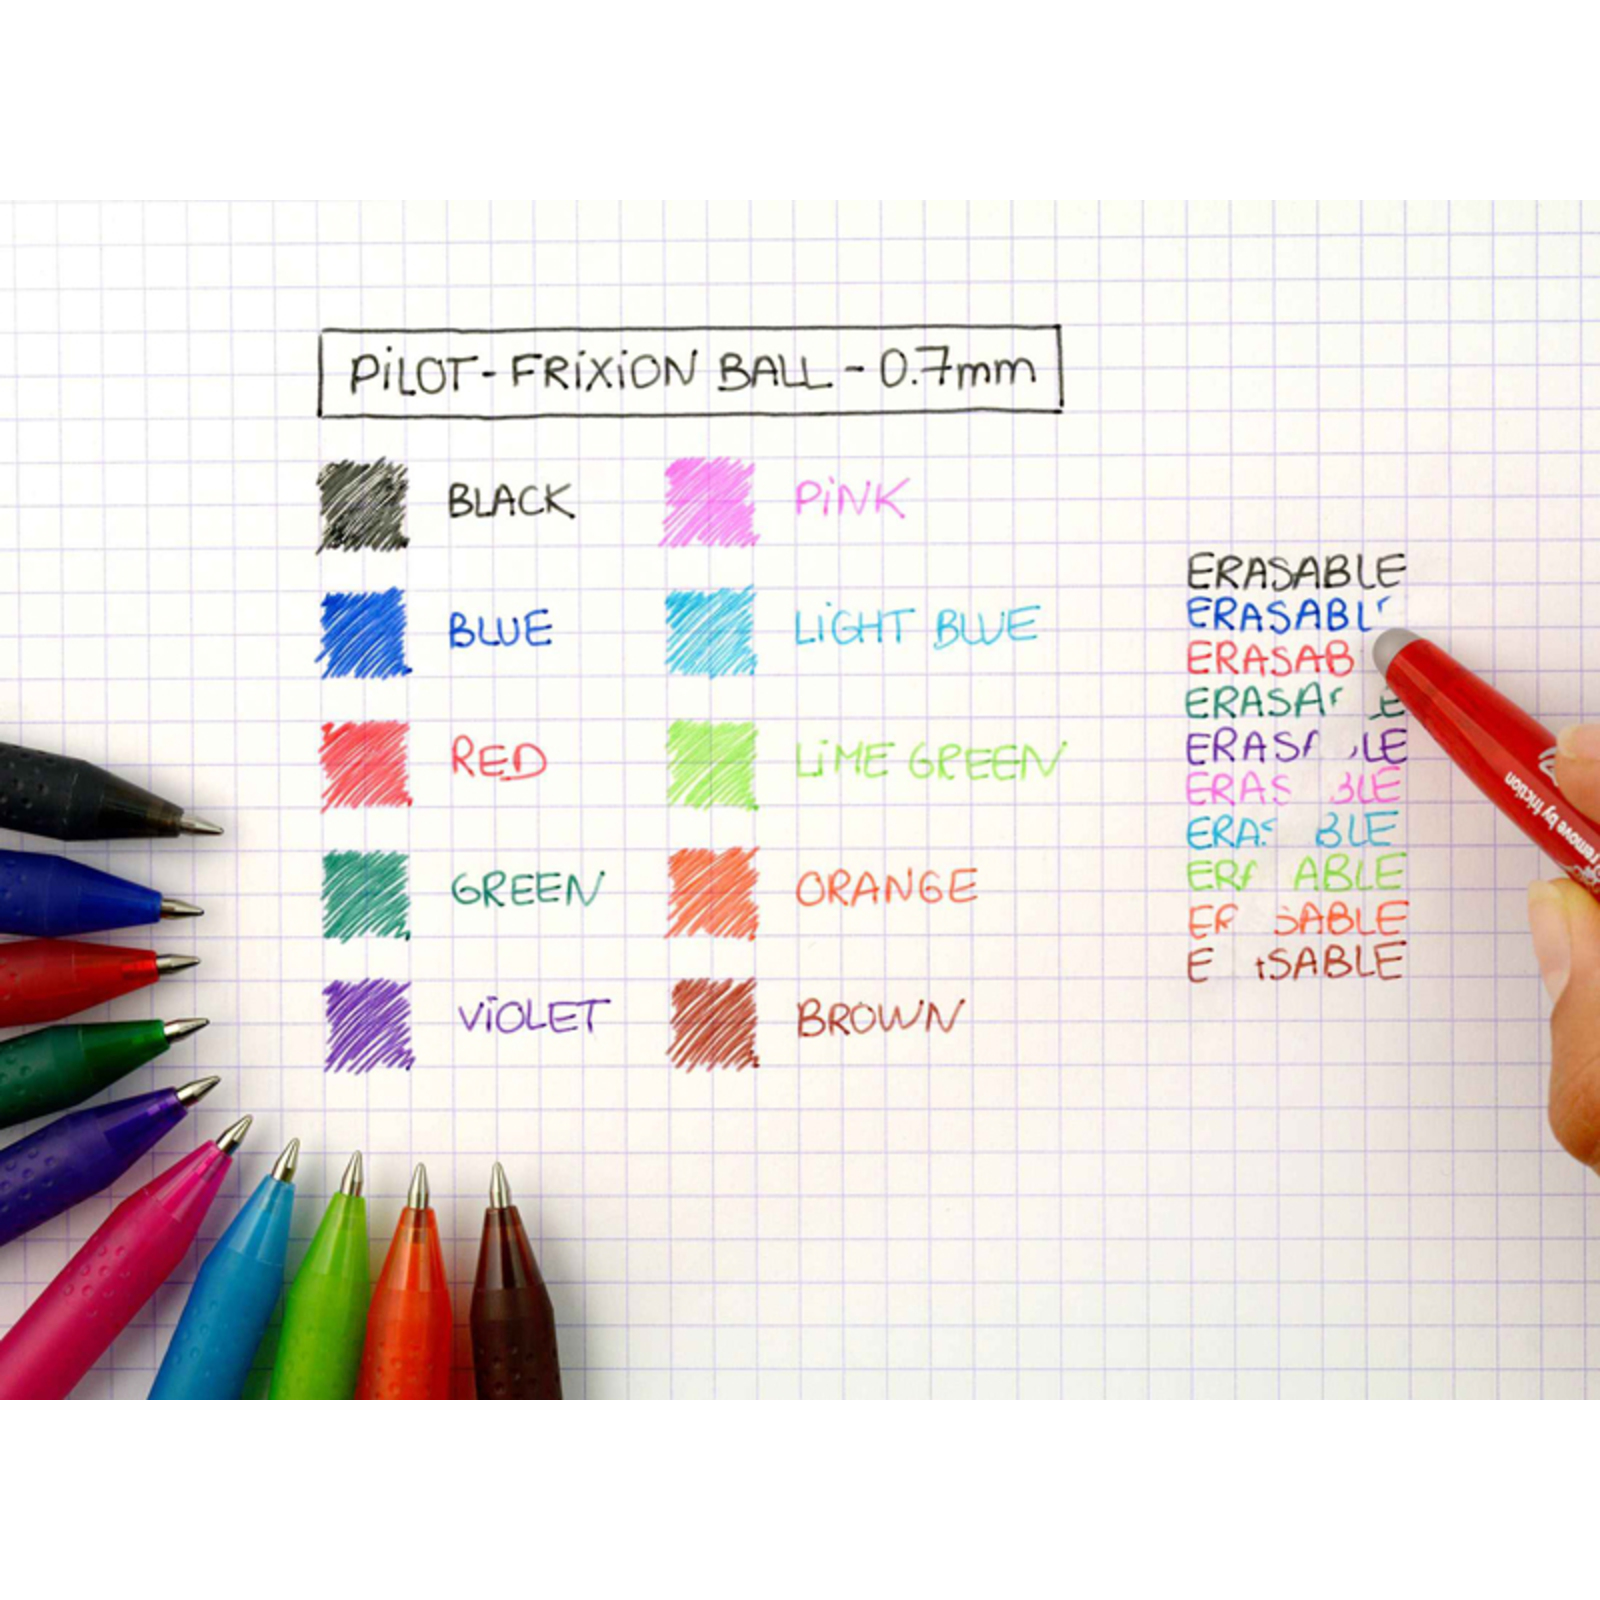 PiLOT - FRiXiON BALL - 0.7mm
BLACK
PiNK
BLUE
LiGHT BLUE
RED
LiME GREEN
GREEN
ORANGE
ViOLET
BROWN
ERASABLE
ERASABL
ERASAB
ERASA E
ERAS LE
ERAS BLE
ERA BLE
ER ABLE
E SABLE
E SABLE
remove by friction